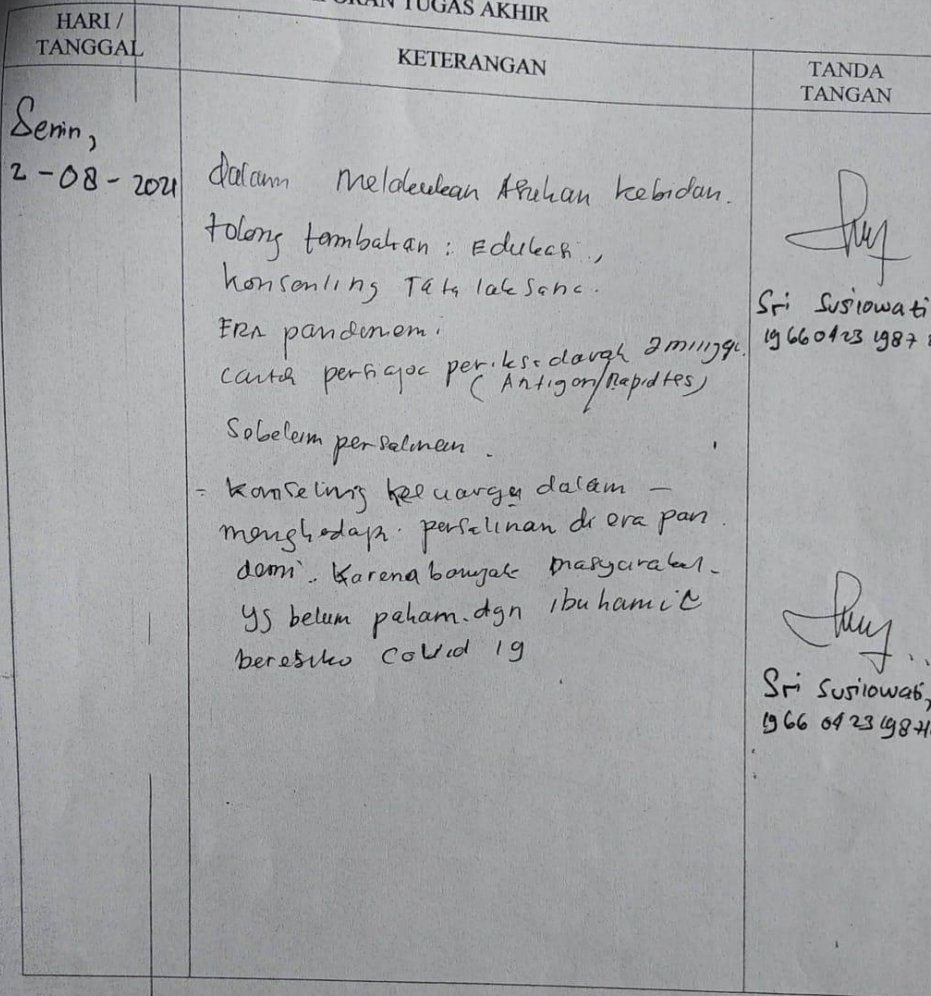 TUGAS AKHIR
HARI /
TANGGAL
KETERANGAN
TANDA
TANGAN
Senin,
2-08-2021
dalam melakukan Asuhan kebidan.
tolong tambahan : Edukasi.,
konsenling Tata laksana.
ERA pandemem.
periksa darah 2 minggu.
(Antigen/Rapidtes)
Sebelum persalinan.
= konseling keluarga dalam -
menghadapi. persalinan di era pan
demi. Karena banyak masyarakat.
yg belum paham. dgn ibu hamil
beresiko Covid 19
Sri Susilowati
19660423 1987
Sri Susilowati,
1966 04 23 1987